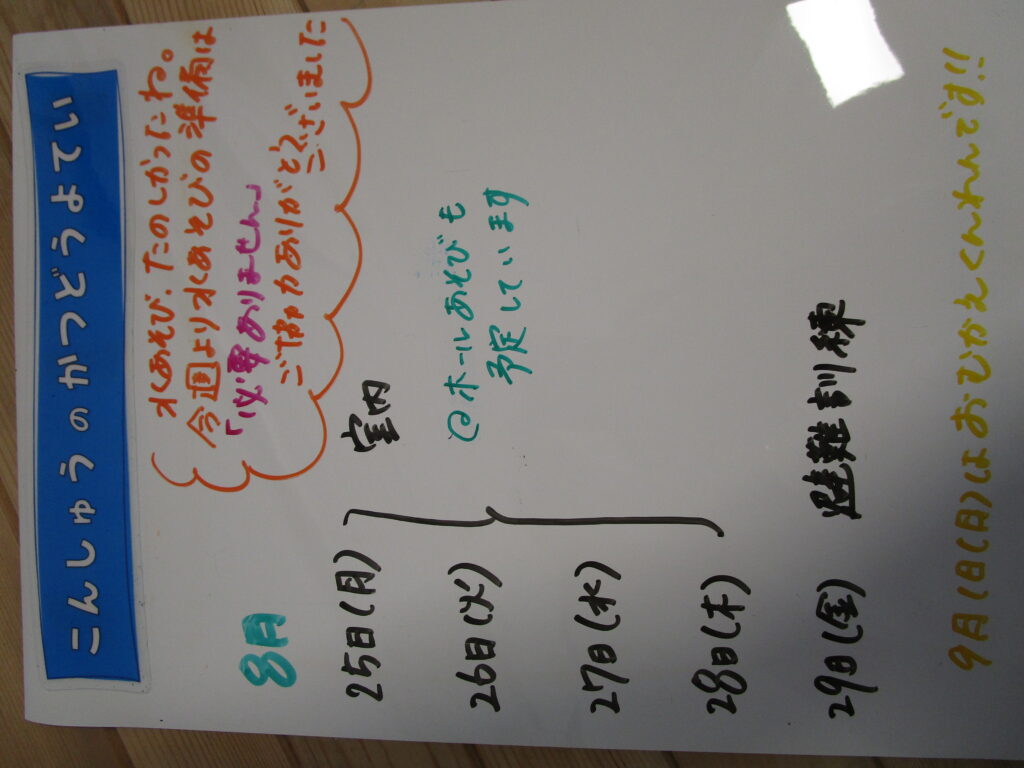 こんしゅうのかつどうよてい
水あそび、たのしかったね。
今週より水あそびの準備は
「必要ありません」
ご協力ありがとうございました
8月
25日(月) 室内
26日(火)
@ホールあそびも
予定しています
27日(水)
28日(木)
29日(金) 避難訓練
9月1日(日)はおむかえくんれんです!!